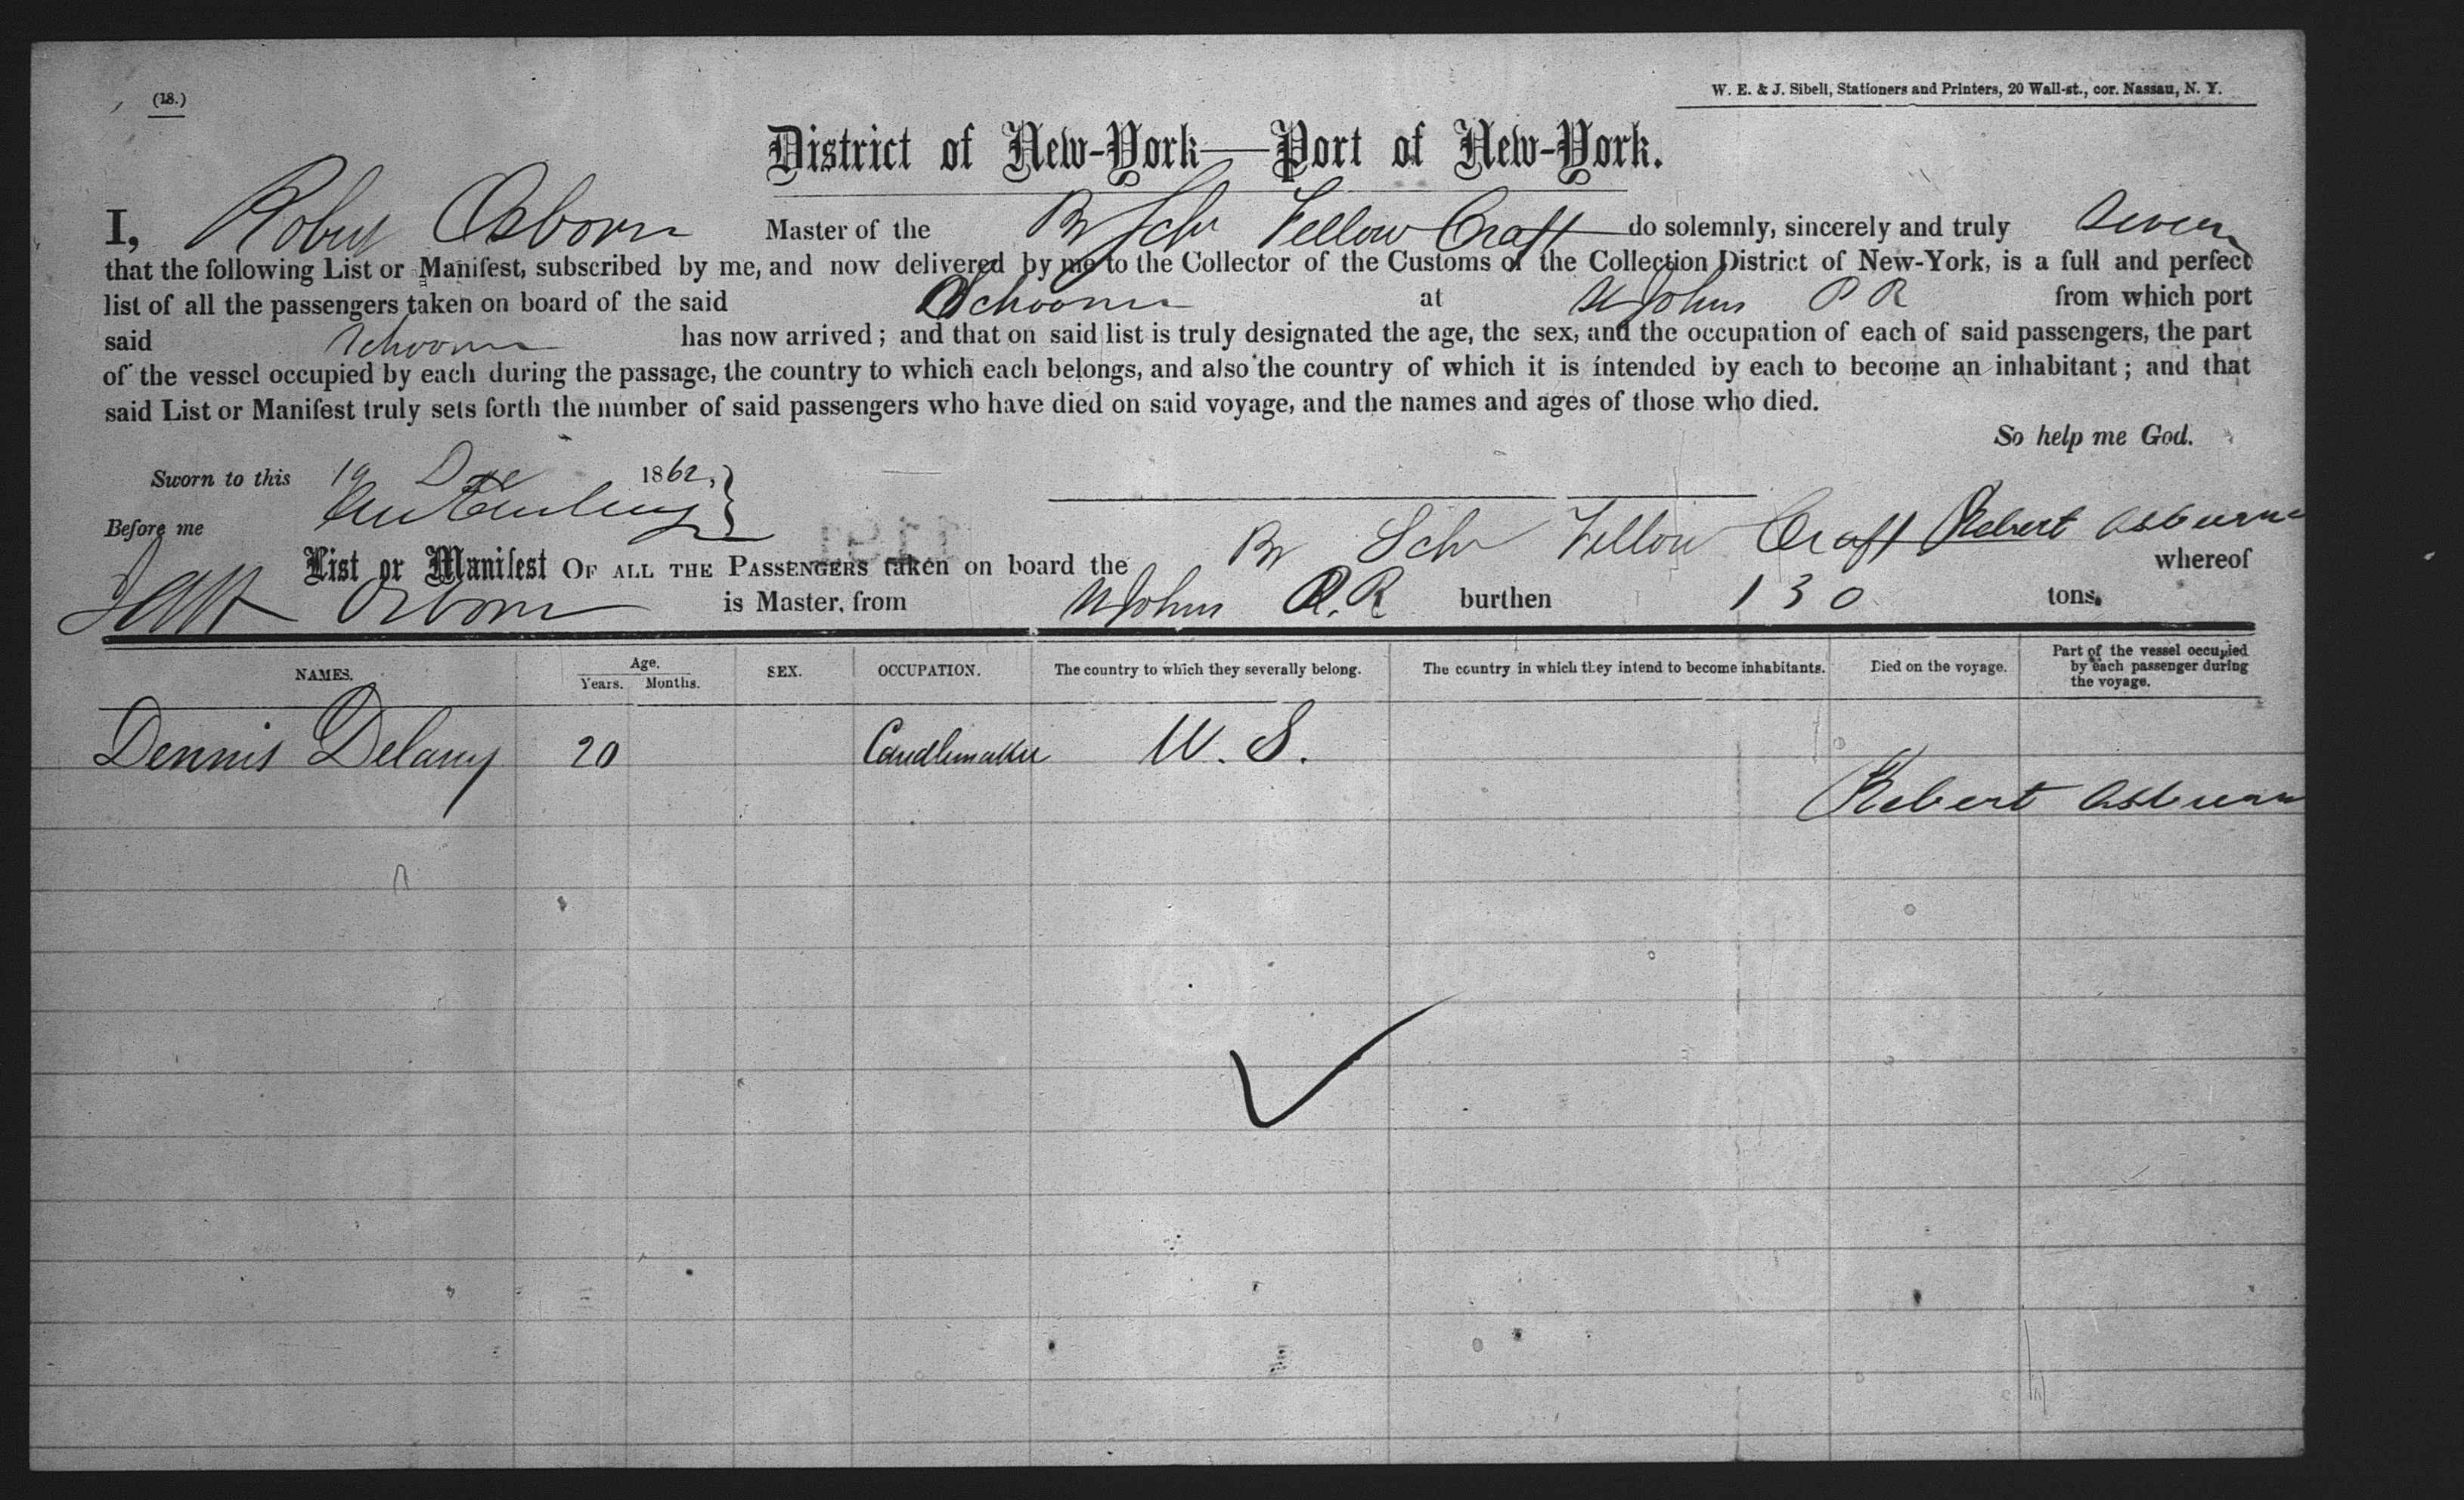 (18.)
W. E. & J. Sibell, Stationers and Printers, 20 Wall-st., cor. Nassau, N. Y.
District of New-York—Port of New-York.
I, Robert Osborn Master of the Br Schr Fellow Craft do solemnly, sincerely and truly swear
that the following List or Manifest, subscribed by me, and now delivered by me to the Collector of the Customs of the Collection District of New-York, is a full and perfect
list of all the passengers taken on board of the said Schooner at St Johns P R from which port
said Schooner has now arrived; and that on said list is truly designated the age, the sex, and the occupation of each of said passengers, the part
of the vessel occupied by each during the passage, the country to which each belongs, and also the country of which it is intended by each to become an inhabitant; and that
said List or Manifest truly sets forth the number of said passengers who have died on said voyage, and the names and ages of those who died.
So help me God.
Sworn to this 19 Dec 1862,
Before me
Robert Osburne
List or Manifest OF ALL THE PASSENGERS taken on board the Br Schr Fellow Craft whereof
Osborn is Master, from St Johns P. R burthen 130 tons.
NAMES. Age. Years. Months. SEX. OCCUPATION. The country to which they severally belong. The country in which they intend to become inhabitants. Died on the voyage. Part of the vessel occupied by each passenger during the voyage.
Dennis Delany 20 Candlemaker U. S.
Robert Osburn